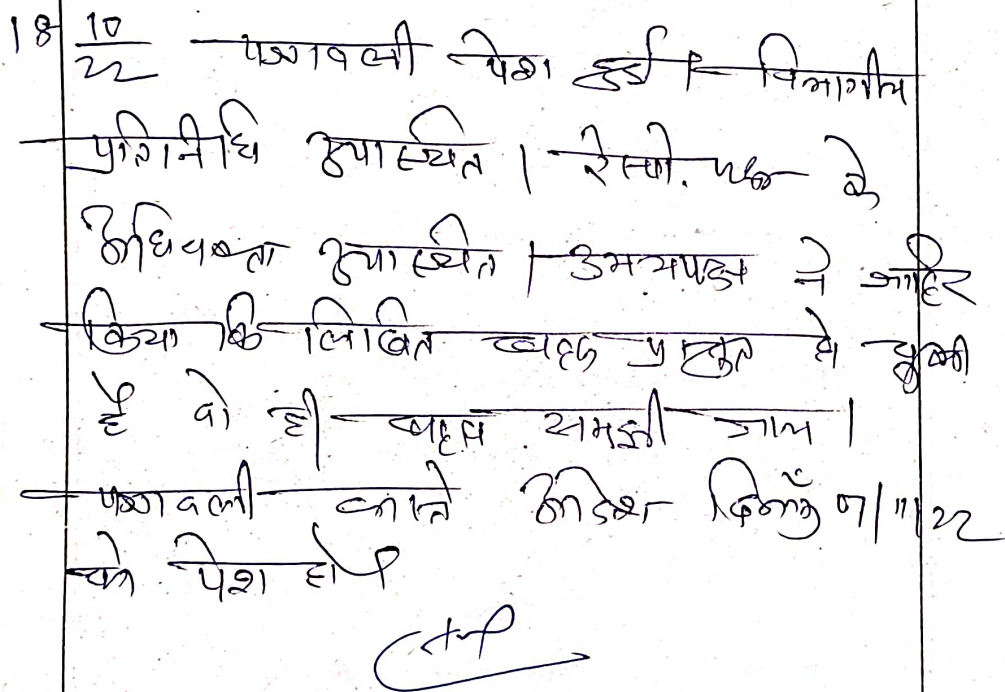 18 10/22 पत्रावली पेश हुई। विभागीय
प्रतिनिधि उपास्थित। रेस्पो. पक्ष के
अधिवक्ता उपास्थित। उभयपक्ष ने जाहिर
किया कि लिखित बहस प्रस्तुत हो चुकी
है वो ही बहस समझी जाय।
पत्रावली वास्ते आदेश दिनाँक 07/11/22
को पेश हो।